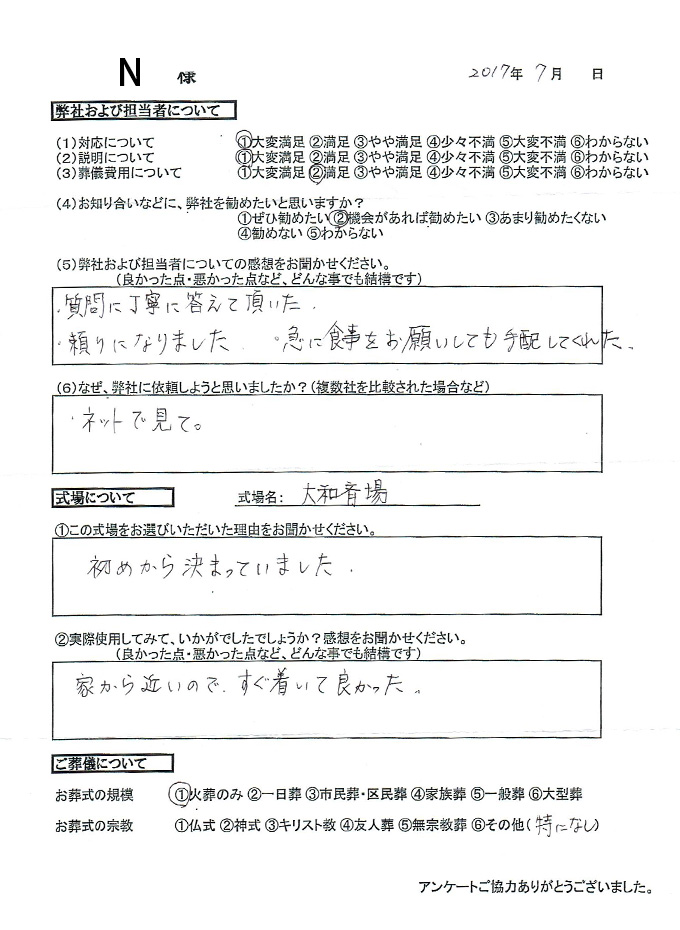 N 様
2017年 7月 日
弊社および担当者について
(1)対応について ①大変満足 ②満足 ③やや満足 ④少々不満 ⑤大変不満 ⑥わからない
(2)説明について ①大変満足 ②満足 ③やや満足 ④少々不満 ⑤大変不満 ⑥わからない
(3)葬儀費用について ①大変満足 ②満足 ③やや満足 ④少々不満 ⑤大変不満 ⑥わからない
(4)お知り合いなどに、弊社を勧めたいと思いますか?
①ぜひ勧めたい ②機会があれば勧めたい ③あまり勧めたくない
④勧めない ⑤わからない
(5)弊社および担当者についての感想をお聞かせください。
(良かった点・悪かった点など、どんな事でも結構です)
・質問に丁寧に答えて頂いた.
・頼りになりました. ・急に食事をお願いしても手配してくれた.
(6)なぜ、弊社に依頼しようと思いましたか?(複数社を比較された場合など)
・ネットで見て。
式場について 式場名: 大和斉場
①この式場をお選びいただいた理由をお聞かせください。
初めから決まっていました.
②実際使用してみて、いかがでしたでしょうか?感想をお聞かせください。
(良かった点・悪かった点など、どんな事でも結構です)
家から近いので、すぐ着いて良かった.
ご葬儀について
お葬式の規模 ①火葬のみ ②一日葬 ③市民葬・区民葬 ④家族葬 ⑤一般葬 ⑥大型葬
お葬式の宗教 ①仏式 ②神式 ③キリスト教 ④友人葬 ⑤無宗教葬 ⑥その他(特になし)
アンケートご協力ありがとうございました。